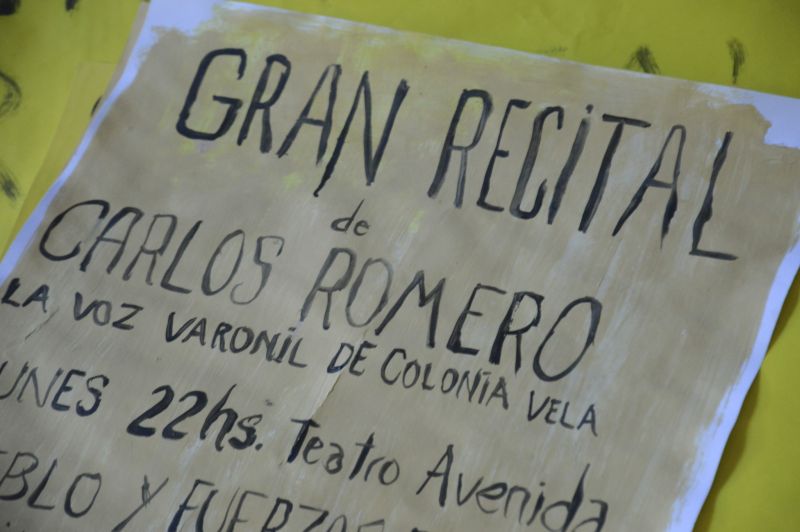 GRAN RECITAL
de
CARLOS ROMERO
LA VOZ VARONIL DE COLONIA VELA
UNES 22hs. Teatro Avenida
EBLO Y FUERZAS